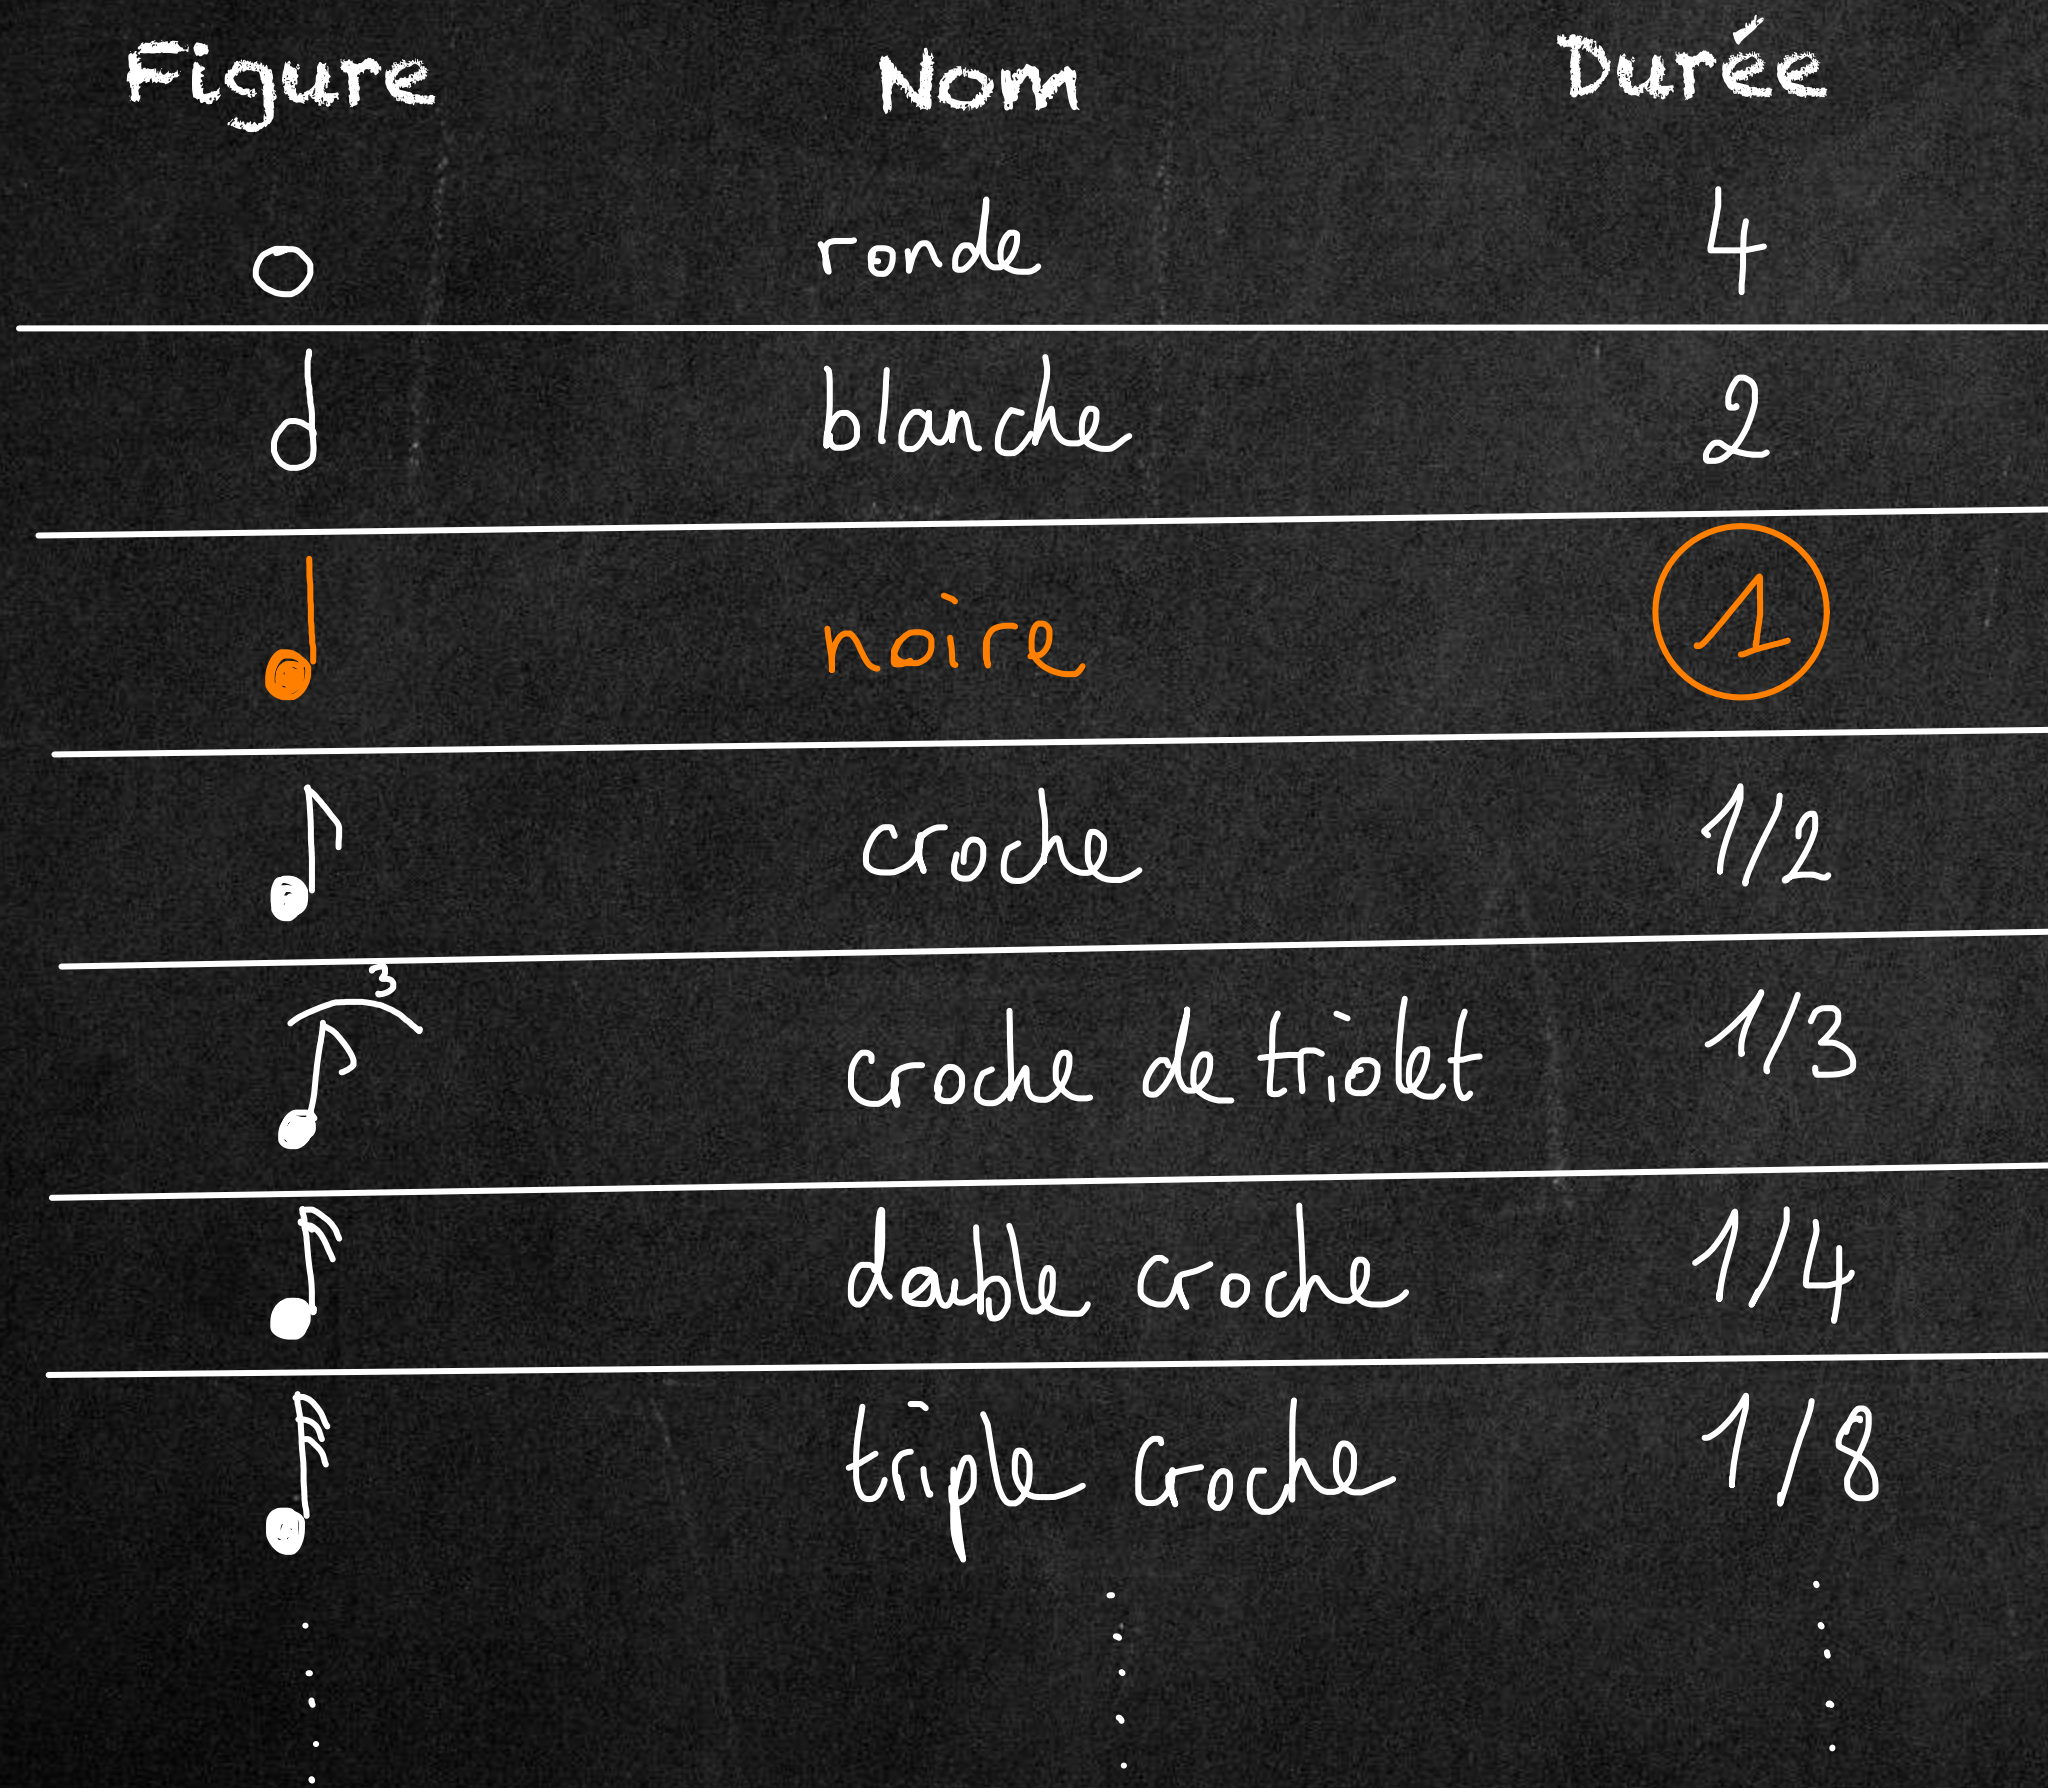 Figure Nom Durée
ronde 4
blanche 2
noire 1
croche 1/2
3
croche de triolet 1/3
double croche 1/4
triple croche 1/8